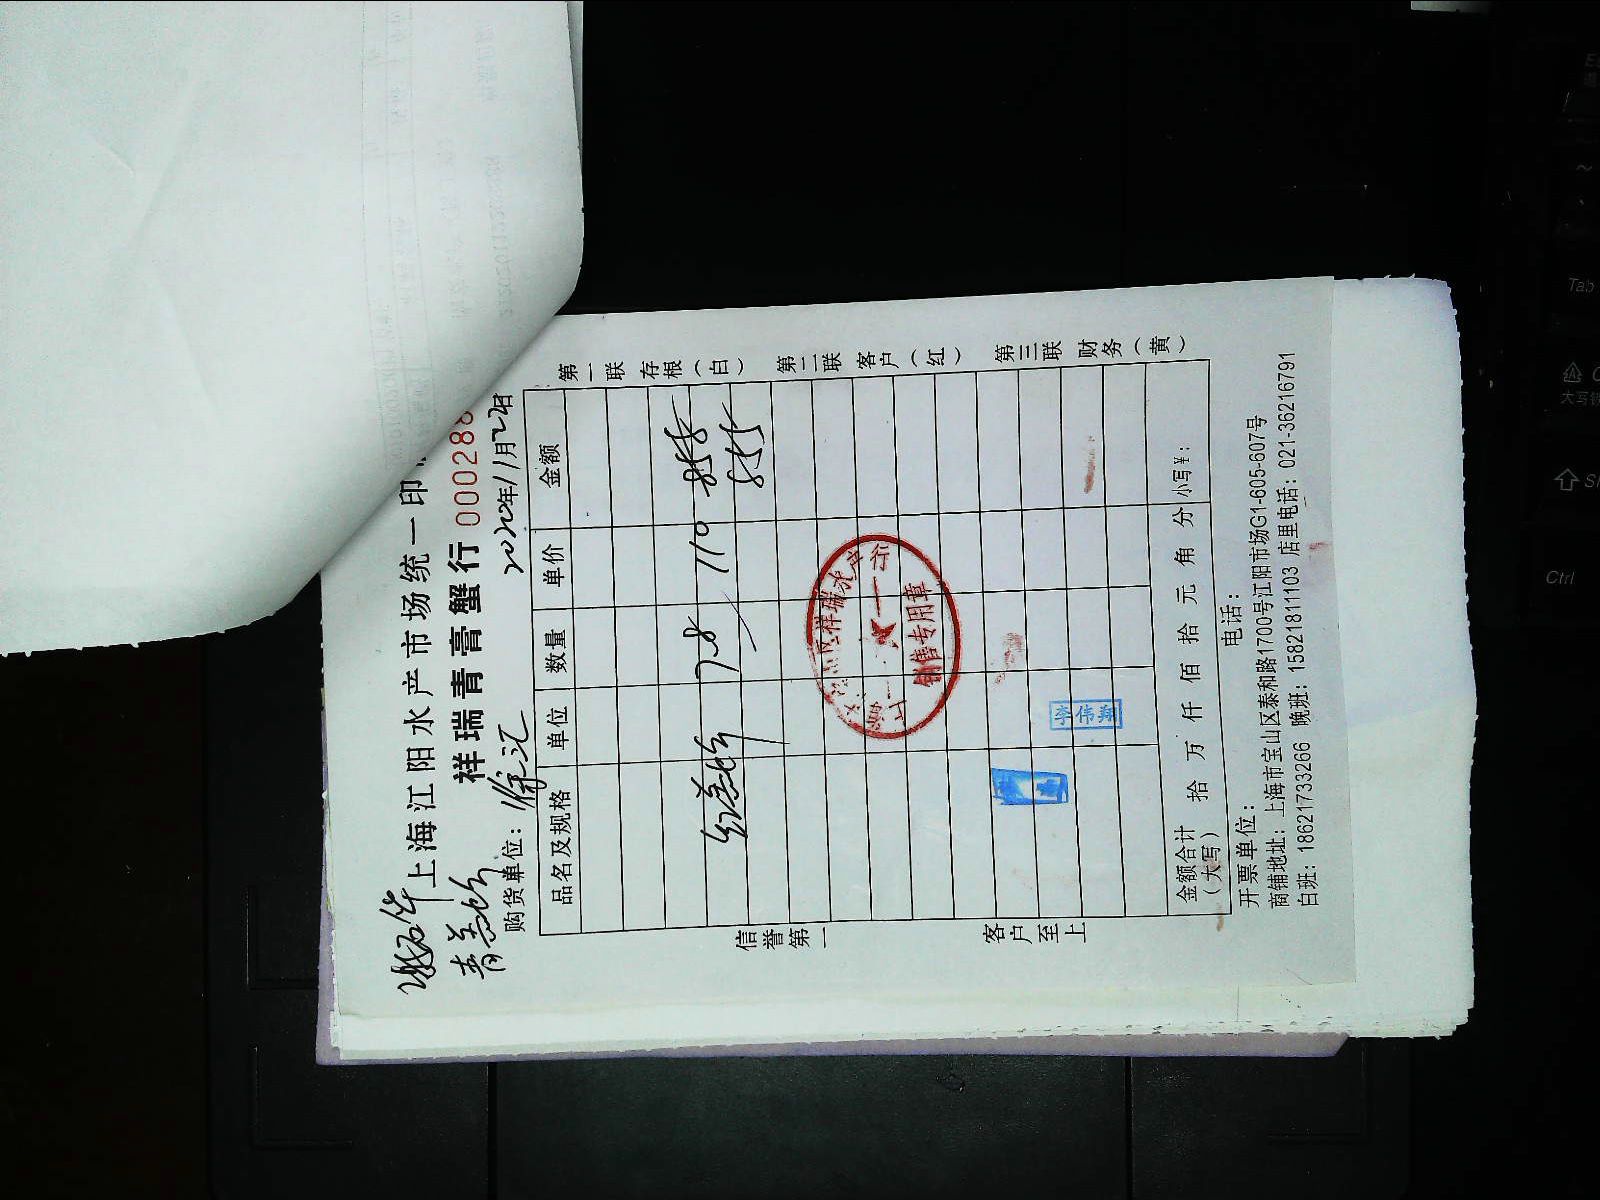 上海江阳水产市场统一印
祥瑞青膏蟹行 000288
购货单位：徐汇 2020年11月22日
品名及规格 单位 数量 单价 金额
7.8 110 858
855
销售专用章
李伟翔
金额合计（大写） 拾 万 仟 佰 拾 元 角 分 小写¥：
开票单位： 电话：
商铺地址：上海市宝山区泰和路1700号江阳市场G1-605-607号
白班：18621733266 晚班：15821811103 店里电话：021-36216791
信誉第一 客户至上
第一联 存根（白） 第二联 客户（红） 第三联 财务（黄）
Tab
Ctrl